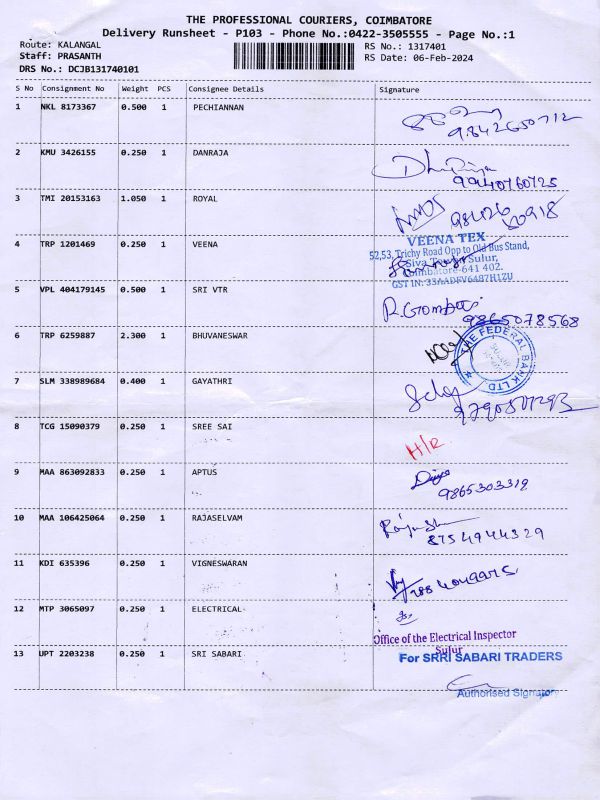 THE PROFESSIONAL COURIERS, COIMBATORE
Delivery Runsheet - P103 - Phone No.:0422-3505555 - Page No.:1
Route: KALANGAL
RS No.: 1317401
Staff: PRASANTH
RS Date: 06-Feb-2024
DRS No.: DCJB131740101
S No Consignment No Weight PCS Consignee Details Signature
1 NKL 8173367 0.500 1 PECHIANNAN
9842650712
2 KMU 3426155 0.250 1 DANRAJA
99940760725
3 TMI 20153163 1.050 1 ROYAL
4 TRP 1201469 0.250 1 VEENA
VEENA TEX
52,53, Trichy Road Opp to Old Bus Stand,
Sulur,
Coimbatore-641 402.
GST IN: 33AADFV6487H1ZU
5 VPL 404179145 0.500 1 SRI VTR
9865078568
6 TRP 6259887 2.300 1 BHUVANESWAR
THE FEDERAL BANK LTD
7 SLM 338989684 0.400 1 GAYATHRI
8 TCG 15090379 0.250 1 SREE SAI
H/R
9 MAA 863092833 0.250 1 APTUS
9865303319
10 MAA 106425064 0.250 1 RAJASELVAM
8754944329
11 KDI 635396 0.250 1 VIGNESWARAN
12 MTP 3065097 0.250 1 ELECTRICAL
Office of the Electrical Inspector
Sulur
13 UPT 2203238 0.250 1 SRI SABARI
For SRRI SABARI TRADERS
Authorised Signatory